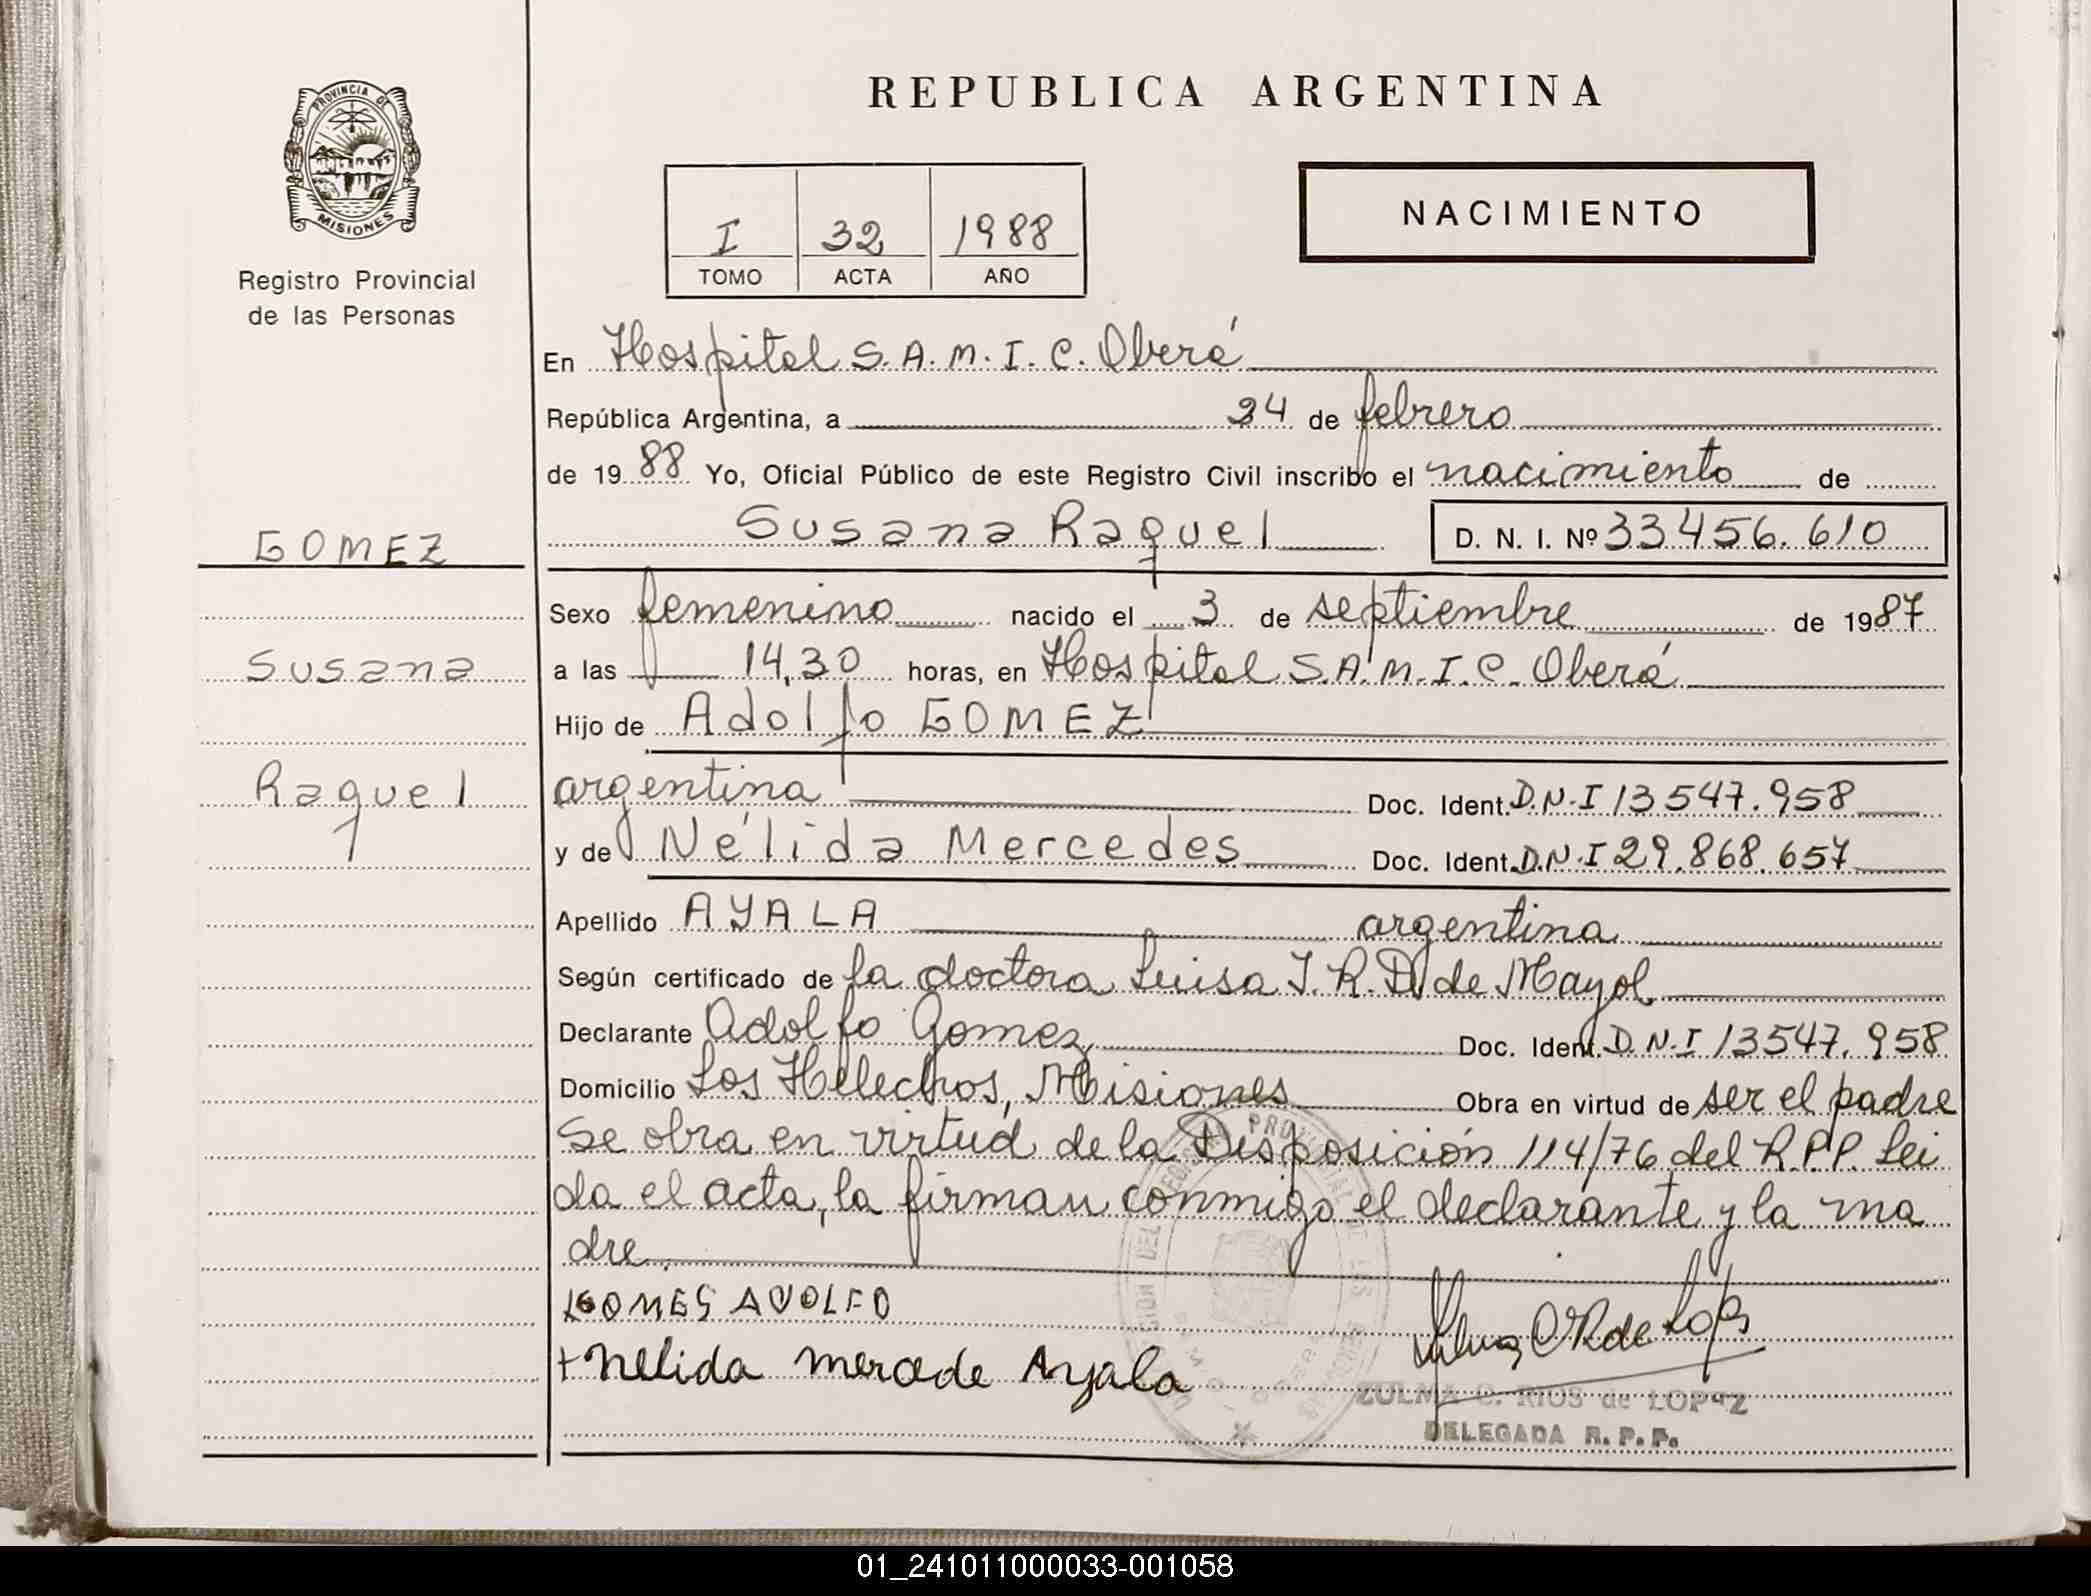 REPUBLICA ARGENTINA
PROVINCIA DE
MISIONES
Registro Provincial
de las Personas
I 32 1988
TOMO ACTA AÑO
NACIMIENTO
En Hospital S.A.M.I.C. Oberá
República Argentina, a 24 de febrero
de 1988 Yo, Oficial Público de este Registro Civil inscribo el nacimiento de
Susana Raquel D. N. I. Nº 33456.610
GOMEZ
Susana
Raquel
Sexo femenino nacido el 3 de septiembre de 1987
a las 14,30 horas, en Hospital S.A.M.I.C. Oberá
Hijo de Adolfo GOMEZ
argentina Doc. Ident. D.N.I 13547.958
y de Nélida Mercedes Doc. Ident. D.N.I 29.868.657
Apellido AYALA argentina
Según certificado de la doctora Luisa J. R. D. de Mayol
Declarante Adolfo Gomez Doc. Ident. D.N.I 13547.958
Domicilio Los Helechos, Misiones Obra en virtud de ser el padre
Se obra en virtud de la Disposición 114/76 del R.P.P. Lei
da el acta, la firman conmigo el declarante y la ma
dre.
GOMES ADOLFO
+ Nelida mercede Ayala
ZULMA C. RIOS de LOPEZ
DELEGADA R. P. P.
01_241011000033-001058